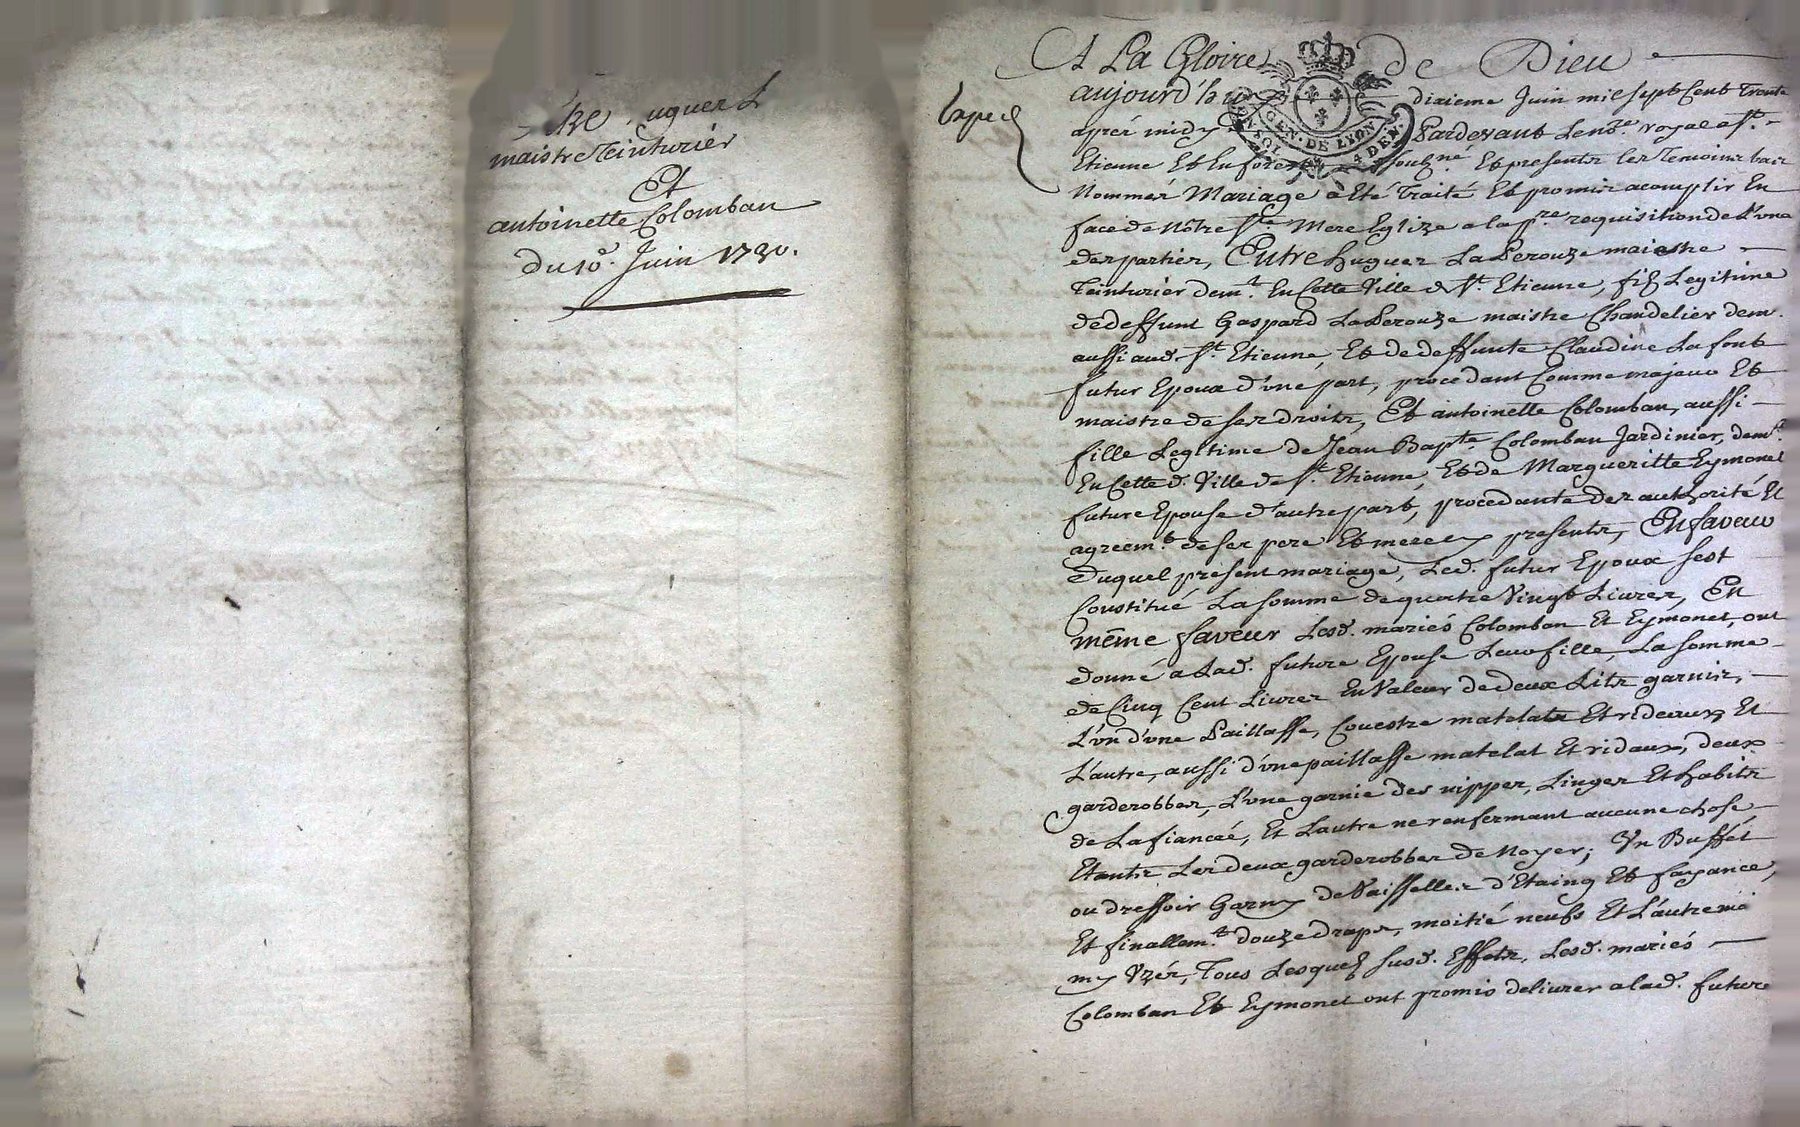 uguer L
maistre Teinturiér
Et
antoinette Colomban
du 10e. Juin 1730.
A La Gloire de Dieu
Exped
aujourd'huy dixieme Juin mil sept Cent Trente
aprés midy Pardevant Le nore. royal a St.
Etienne Et En forest soubzné Et presents les Temoins bas
Nommés Mariage a Eté Traité Et promis acomplir En
face de Nôtre Ste. Mere Eglize a la pre. requisition de L'une
des parties, Entre hugues La Perouze maistre
Teinturiér demt. En Cette Ville de St. Etienne, filz Legitime
de deffunt Gaspard La Perouze maistre Chandelier dem.
aussi aud. St. Etienne, Et de deffunte Claudine La font
futur Epoux d'une part, procedant Comme majeur Et
maistre de ses droits, Et antoinette Colomban, aussi
fille Legitime de Jean Bapte. Colomban Jardinier, demt.
En Cette d. Ville de St. Etienne, Et de Margueritte Eymonet
future Epouse d'autre part, procedante des authorité Et
agreemt. de ses pere Et mere Cy presents, En faveur
duquel present mariage, Led. futur Epoux sest
Constitué La somme de quatre Vingt Livres, En
même faveur Lesd. mariés Colomban Et Eymonet, ont
donné a Lad. future Epouse Leur fille, La somme
de Cinq Cent Livres En Valeur de deux Lits garnis,
L'un d'une Paillasse, Couestre matelats Et rideaux, Et
L'autre, aussi d'une paillasse matelat Et ridaux, deux
garderobbes, L'une garnie des nippes, Linges Et habits
de La fiancéé, Et Lautre ne renfermant aucune chose,
Etants Les deux garderobbes de Noyer; Vn Buffét
ou dressoir Garny de Vaisselles d'Etaing Et fayance,
Et finallemt. douze draps, moitié neufs Et L'autre mi
my Vzés, Tous Lesquelz susd. Effets, Lesd. mariés
Colomban Et Eymonet ont promis delivrer a lad. future
GEN. DE LYON